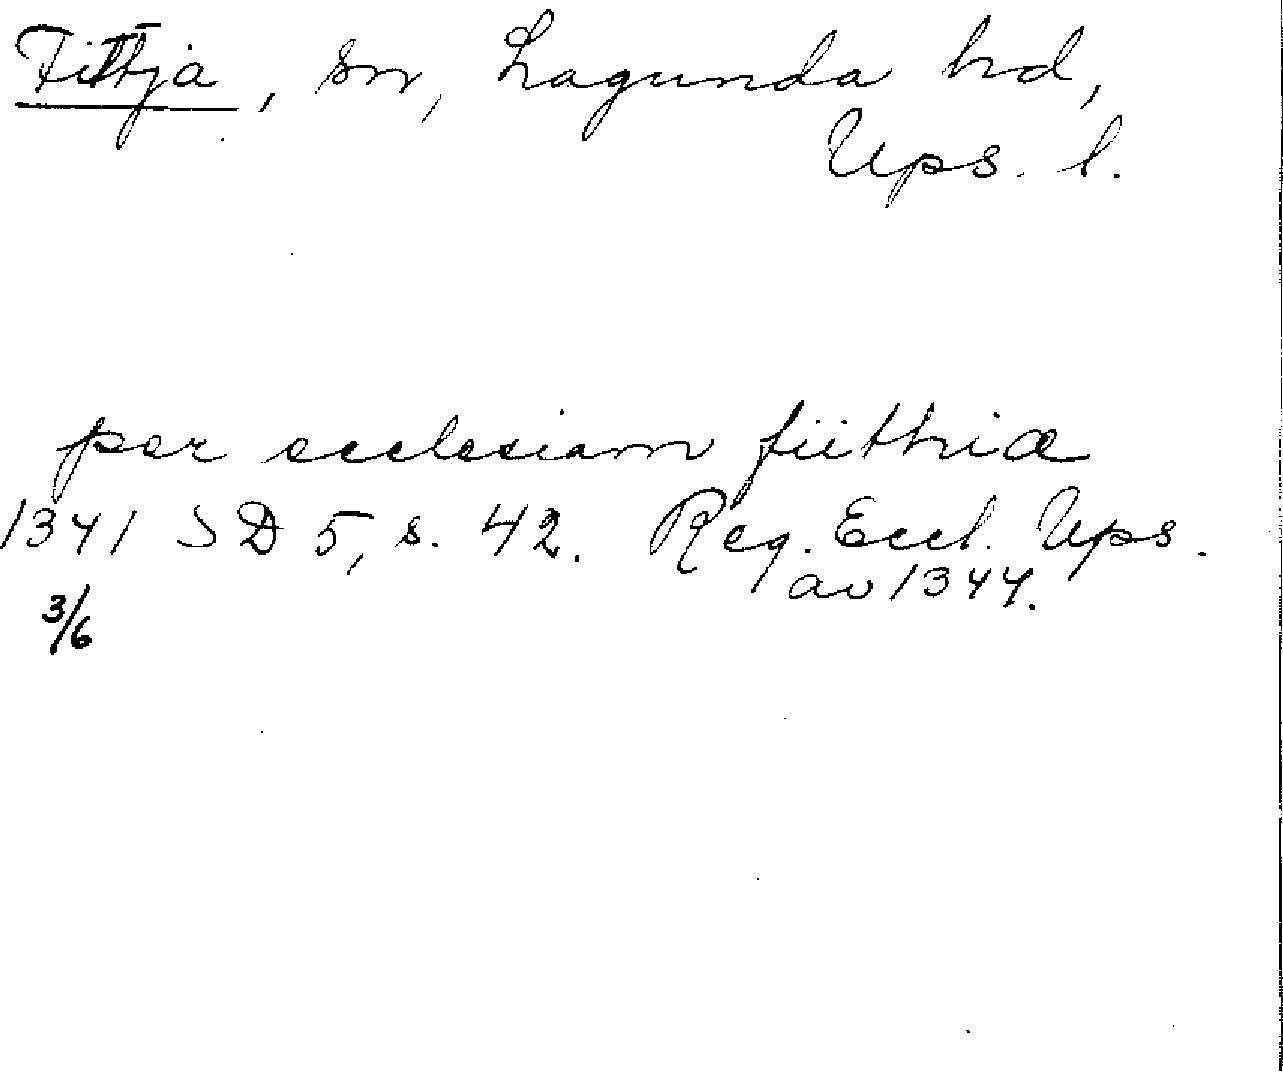 Fittja, sn, Lagunda hd,
Ups. l.
per ecclesiam fiithiæ
1341 SD 5, s. 42. Reg. Eccl. Ups.
av 1344.
3/6